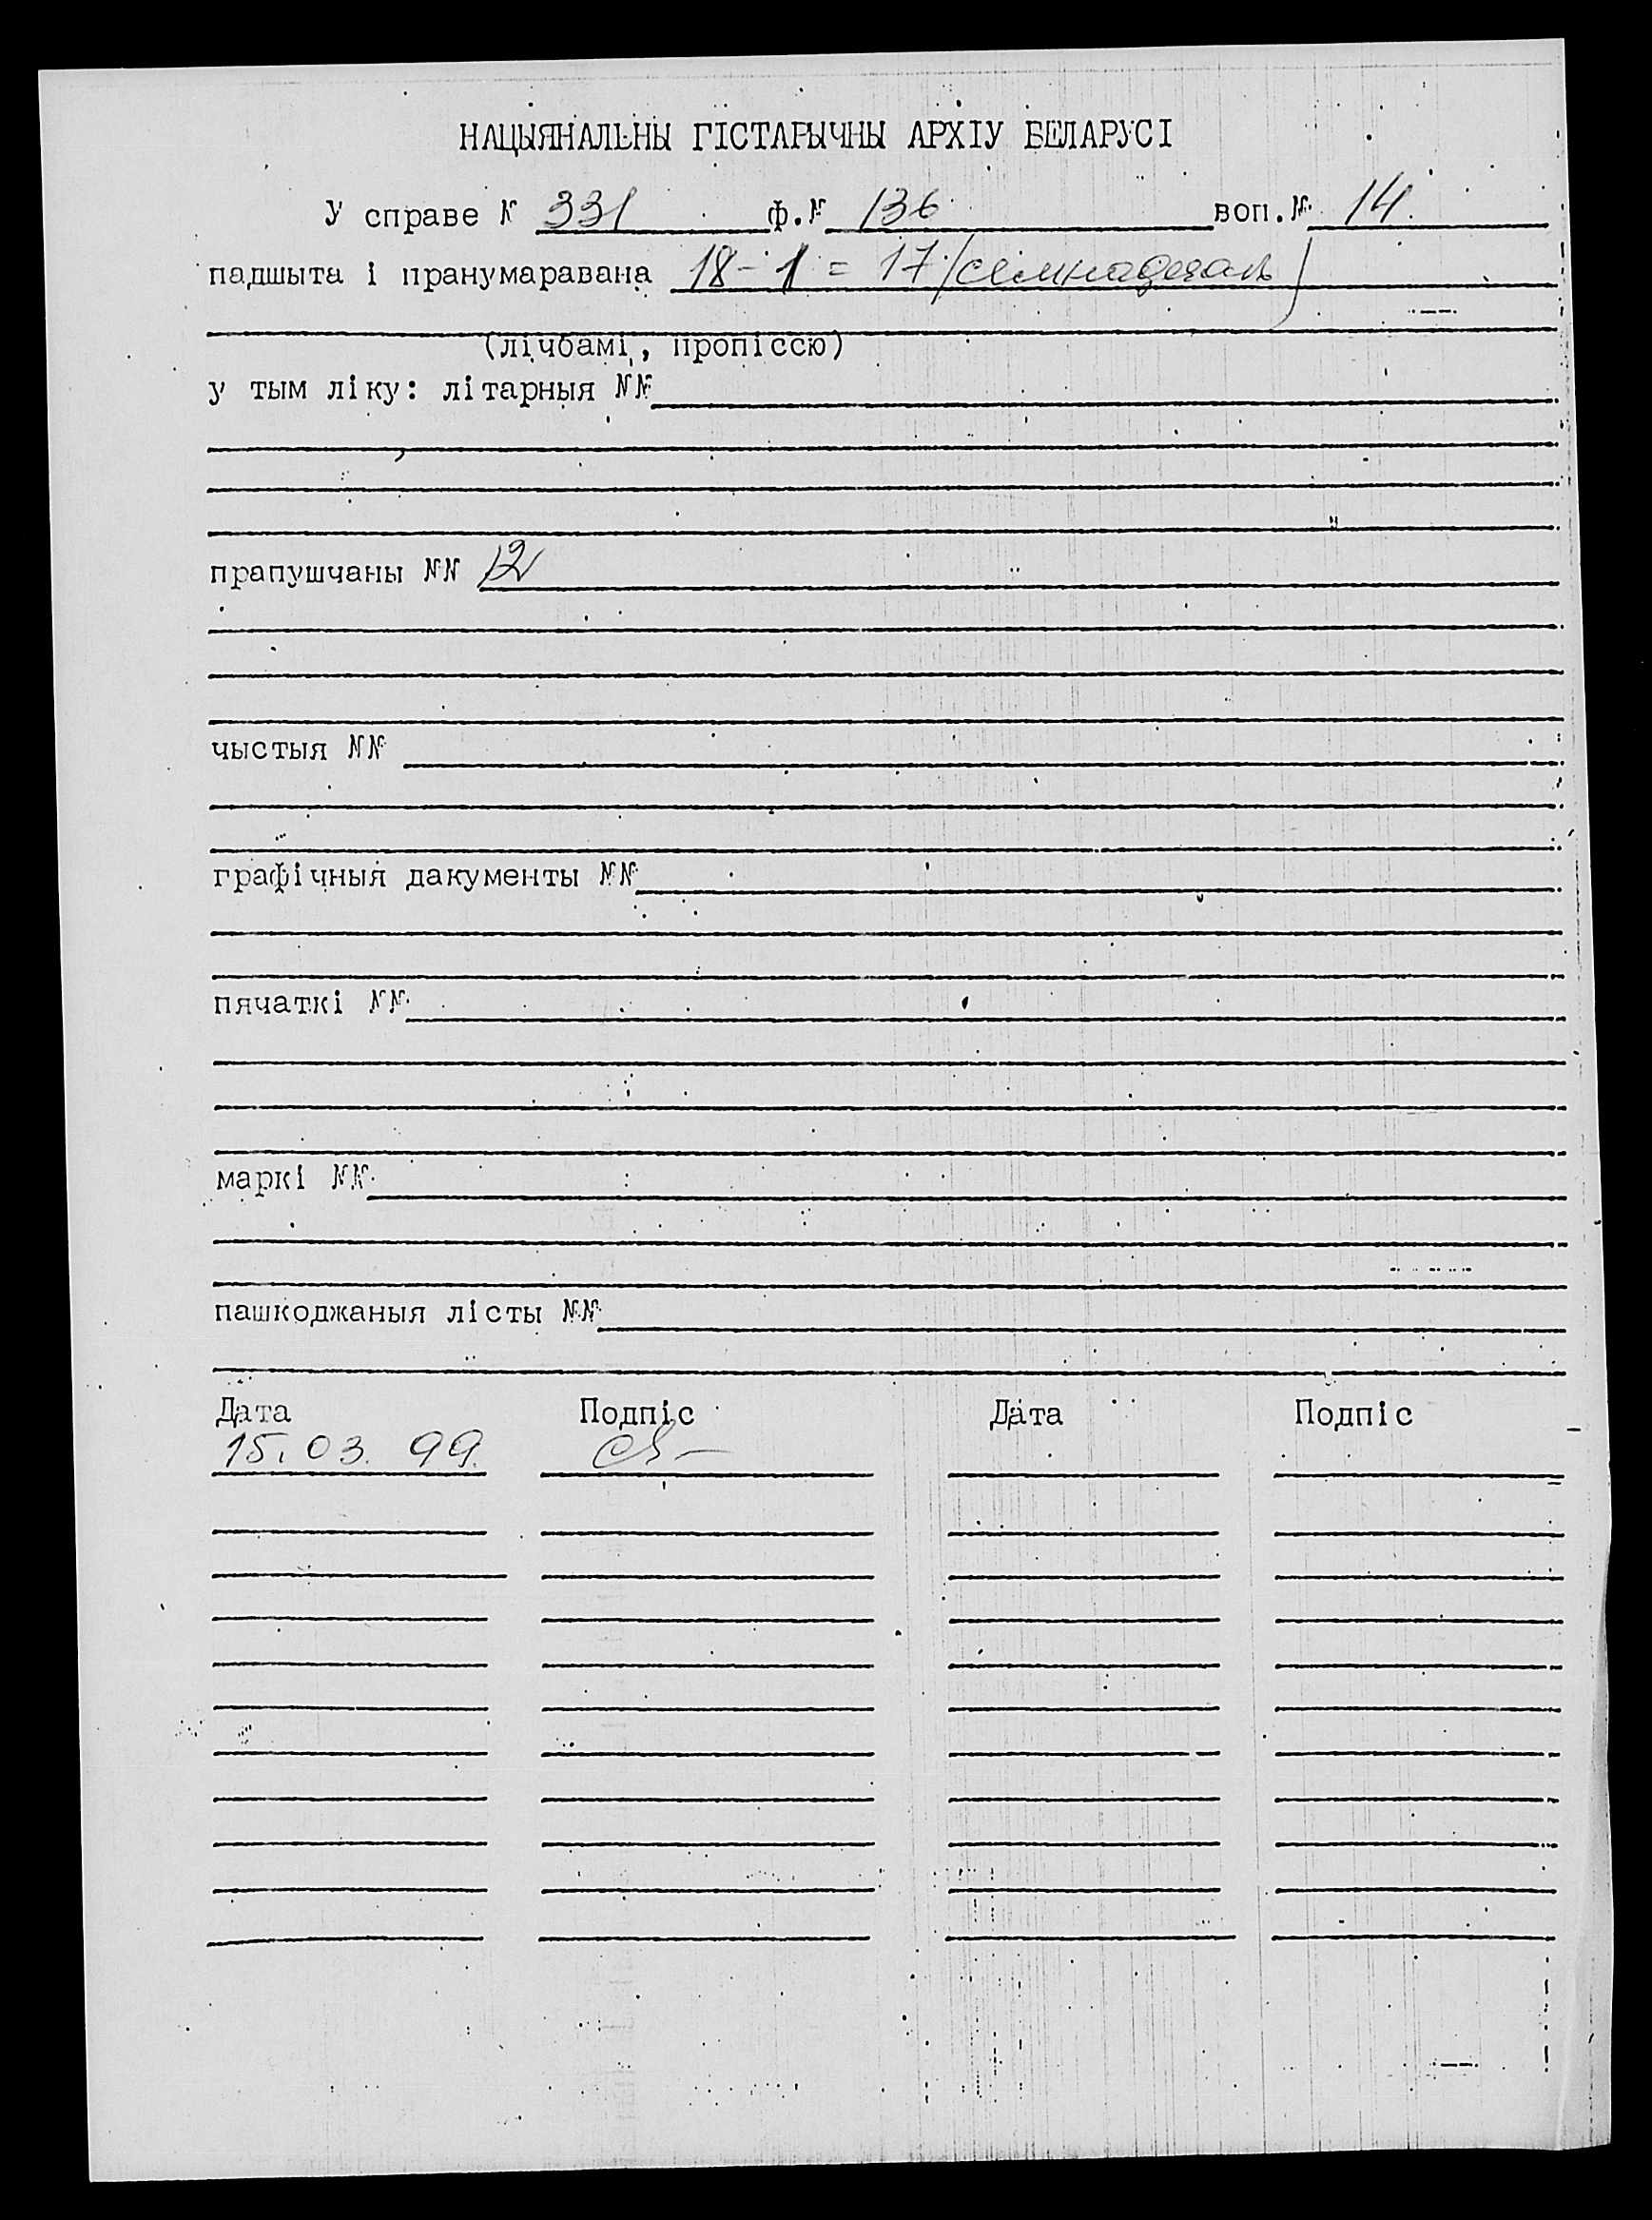 НАЦЫЯНАЛЬНЫ ГІСТАРЫЧНЫ АРХІУ БЕЛАРУСІ
У справе № 331 ф.№ 136 воп.№ 14.
падшыта і пранумаравана 18-1=17/семнадцать/
(лічбамі, пропіссю)
у тым ліку: літарныя №№
прапушчаны №№ 12
чыстыя №№
графічныя дакументы №№
пячаткі №№
маркі №№
пашкоджаныя лісты №№
Дата Подпіс Дата Подпіс
15.03.99.